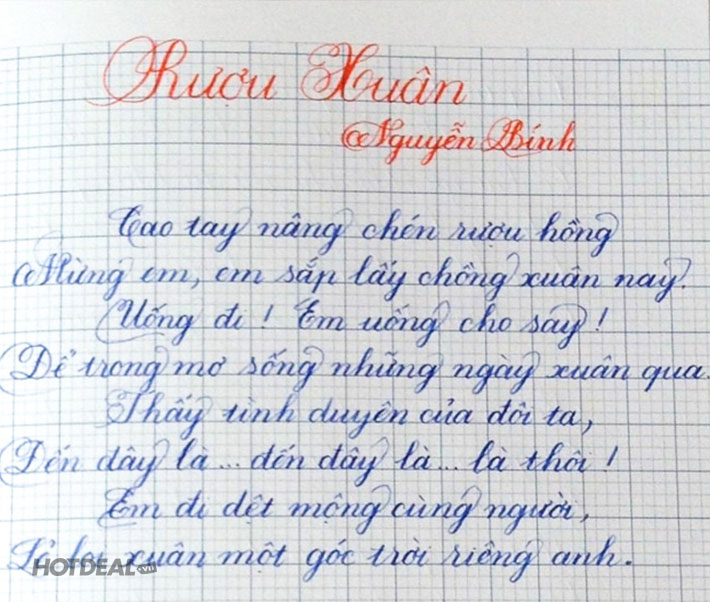 Rượu Xuân
Nguyễn Bính
Cao tay nâng chén rượu hồng
Mừng em, em sắp lấy chồng xuân nay.
Uống đi ! Em uống cho say !
Để trong mơ sống những ngày xuân qua.
Thấy tình duyên của đôi ta,
Đến đây là... đến đây là... là thôi !
Em đi dệt mộng cùng người,
Lẻ loi xuân một góc trời riêng anh.
HOTDEAL.VN